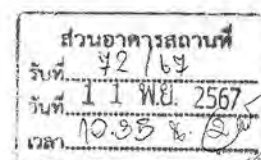 ส่วนอาคารสถานที่
รับที่ 72 / 67
วันที่ 11 พ.ย. 2567
เวลา 10.35 น.